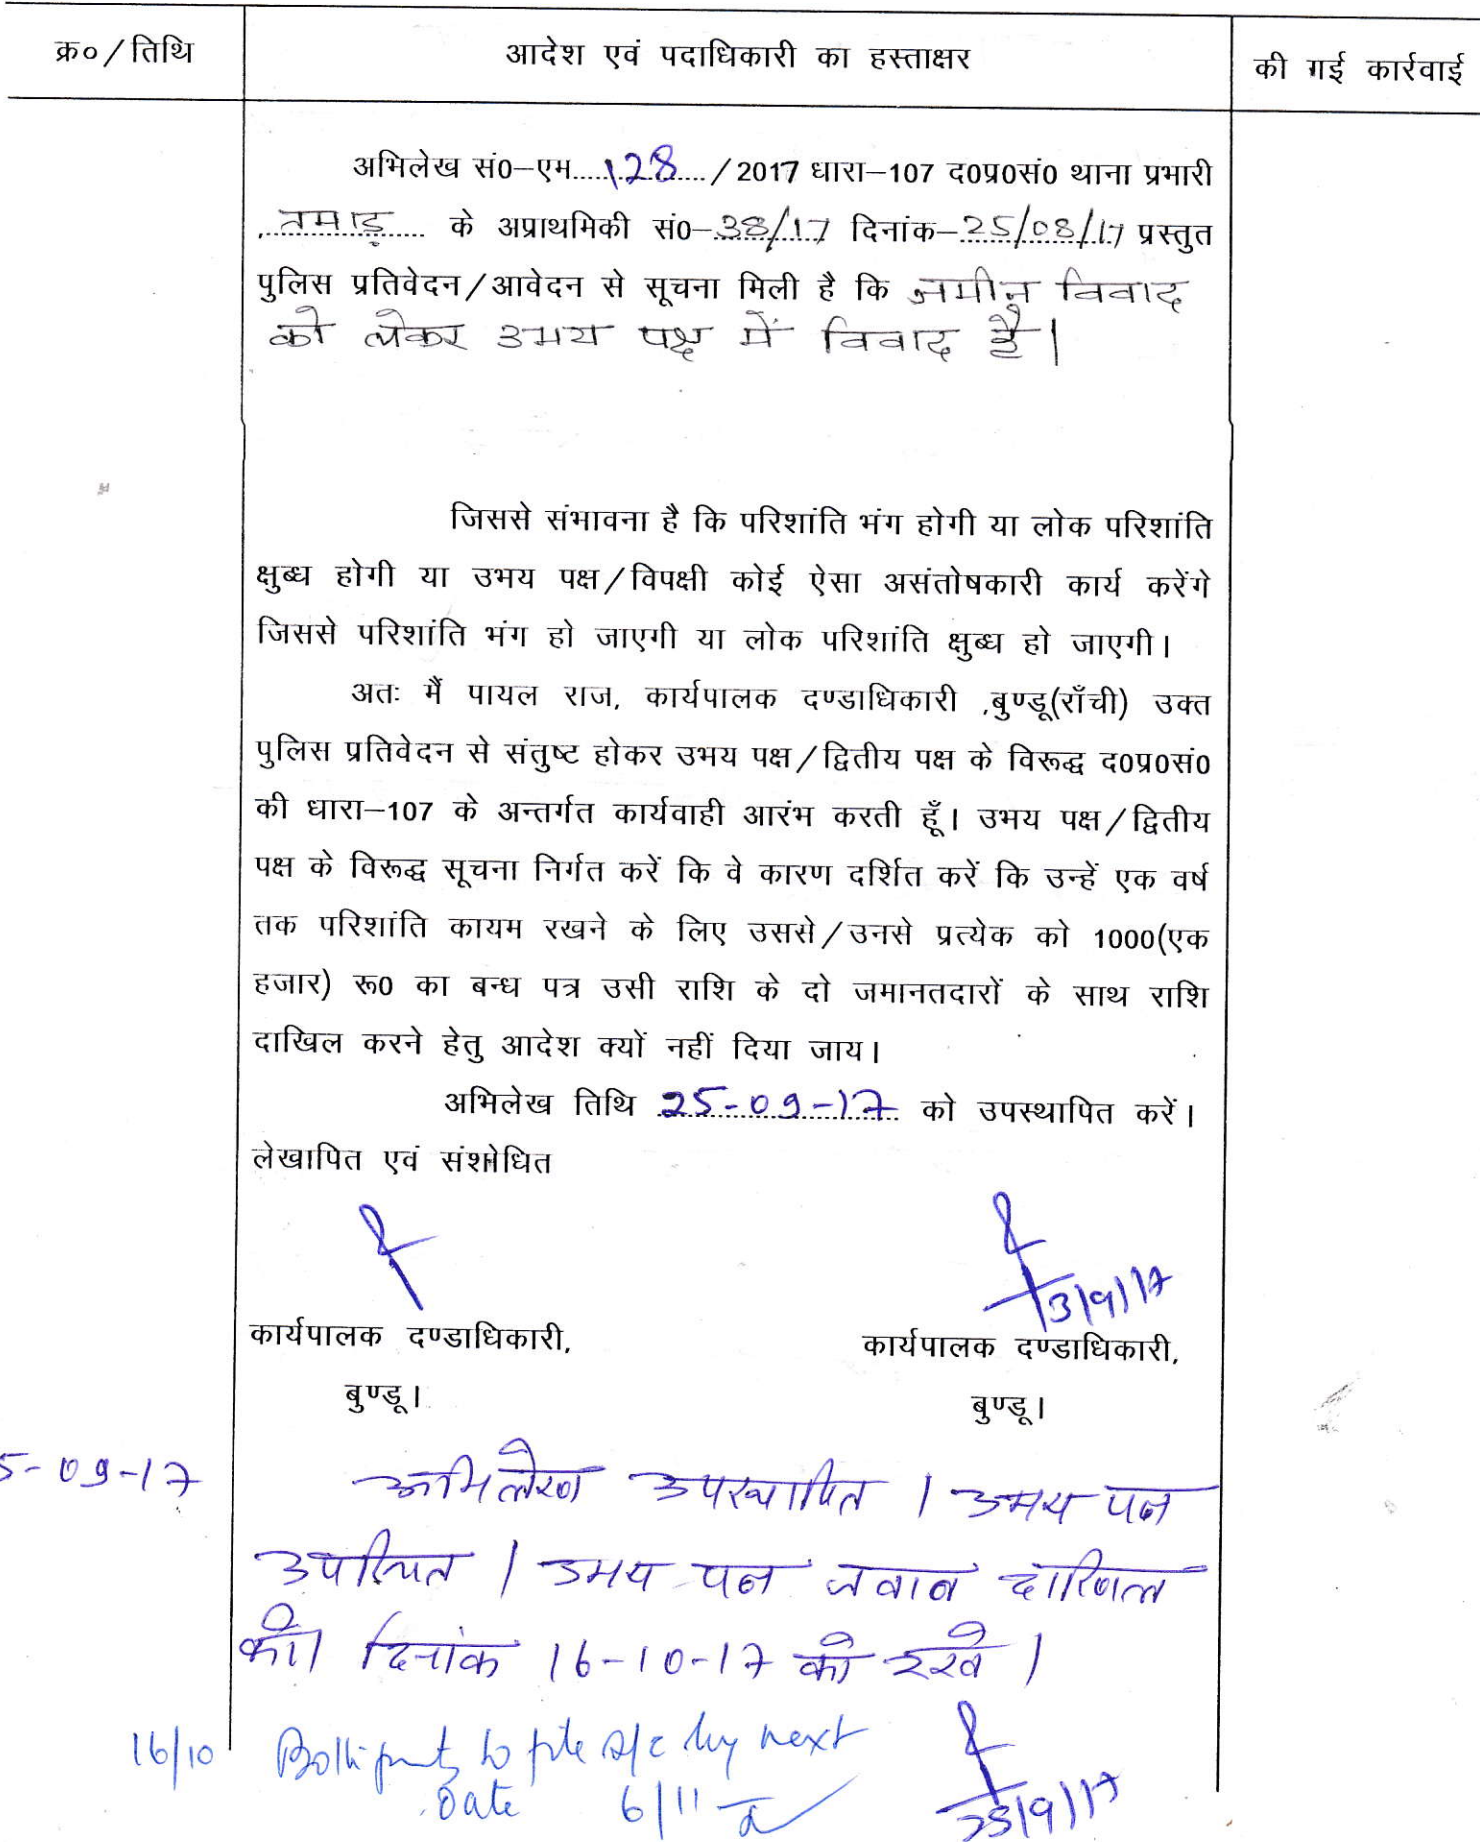 क्र० / तिथि
आदेश एवं पदाधिकारी का हस्ताक्षर
की गई कार्रवाई
अभिलेख सं०–एम.....128...../ 2017 धारा–107 द०प्र०सं० थाना प्रभारी
तमाड़ के अप्राथमिकी सं०–38/17 दिनांक–25/08/17 प्रस्तुत
पुलिस प्रतिवेदन/आवेदन से सूचना मिली है कि जमीन विवाद
को लेकर उभय पक्ष में विवाद है।
जिससे संभावना है कि परिशांति भंग होगी या लोक परिशांति
क्षुब्ध होगी या उभय पक्ष/विपक्षी कोई ऐसा असंतोषकारी कार्य करेंगे
जिससे परिशांति भंग हो जाएगी या लोक परिशांति क्षुब्ध हो जाएगी।
अतः मैं पायल राज, कार्यपालक दण्डाधिकारी ,बुण्डू(राँची) उक्त
पुलिस प्रतिवेदन से संतुष्ट होकर उभय पक्ष/द्वितीय पक्ष के विरूद्ध द०प्र०सं०
की धारा–107 के अन्तर्गत कार्यवाही आरंभ करती हूँ। उभय पक्ष/द्वितीय
पक्ष के विरूद्ध सूचना निर्गत करें कि वे कारण दर्शित करें कि उन्हें एक वर्ष
तक परिशांति कायम रखने के लिए उससे/उनसे प्रत्येक को 1000(एक
हजार) रू० का बन्ध पत्र उसी राशि के दो जमानतदारों के साथ राशि
दाखिल करने हेतु आदेश क्यों नहीं दिया जाय।
अभिलेख तिथि 25-09-17 को उपस्थापित करें।
लेखापित एवं संशोधित
13/9/17
कार्यपालक दण्डाधिकारी,
बुण्डू।
कार्यपालक दण्डाधिकारी,
बुण्डू।
5-09-17 अभिलेख उपस्थापित। उभय पक्ष
उपस्थित। उभय पक्ष जवाब दाखिल
की। दिनांक 16-10-17 को रखें।
16/10 Both party to file s/c by next
Date 6/11
25/9/17